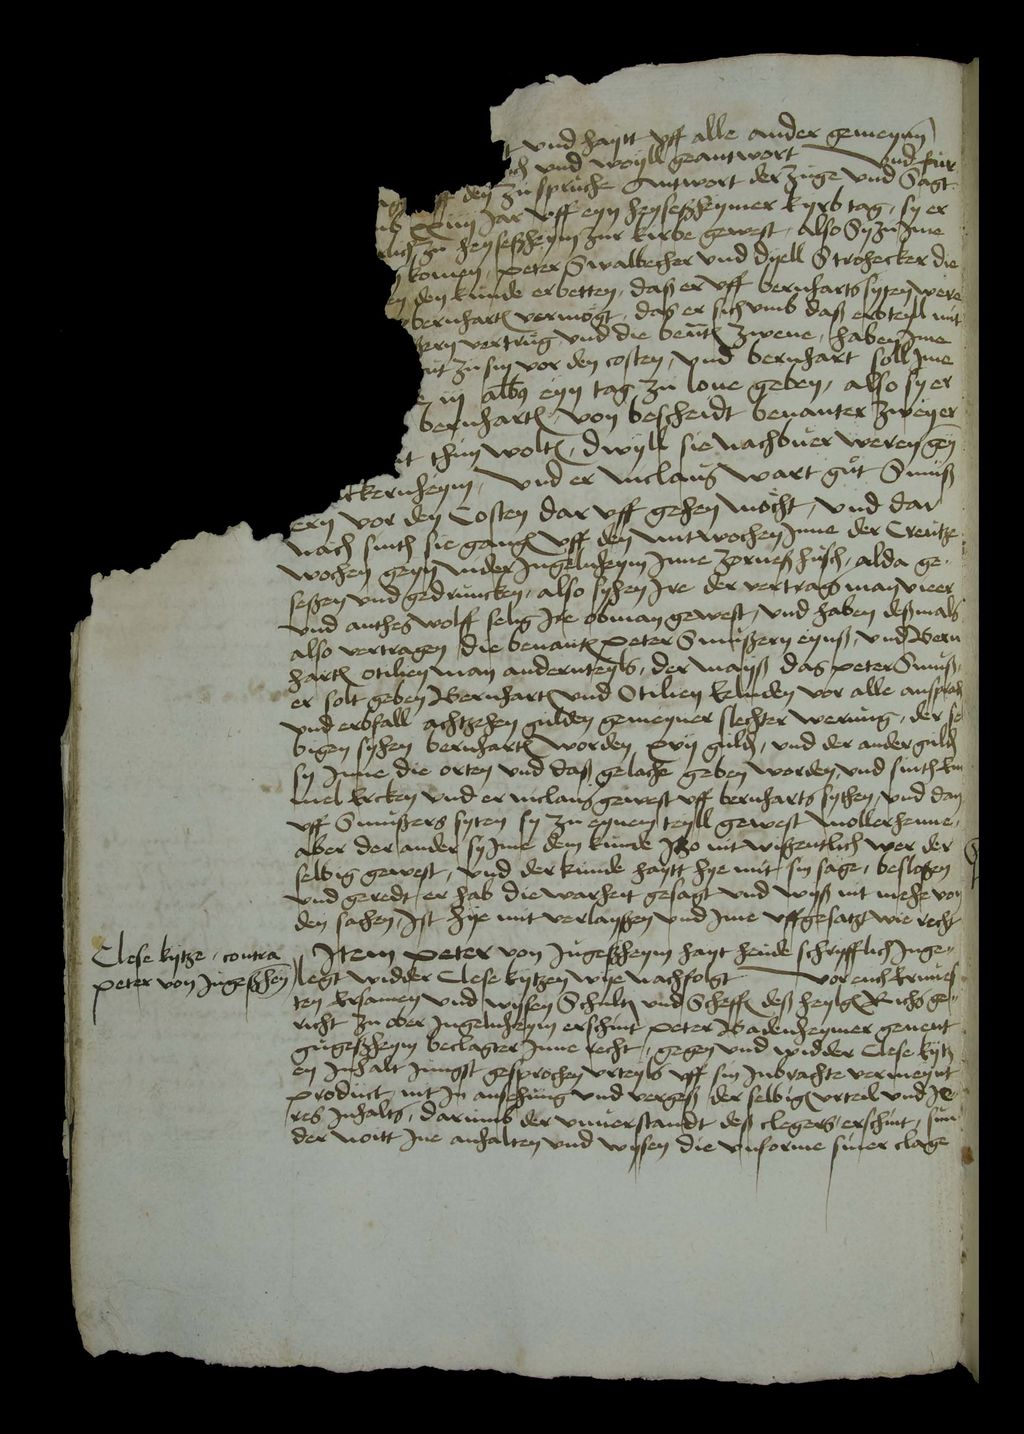 t und haytt vff alle ander gemeyn
ch und woyll geantwort und fur
vff den zuspruche Antwort der zuge und Sagt
xiiij Jar vff eyn heyseßheymer kyrbtag, sy er
lich zu heyseßheym zur kirbe gewest, also Sy zu Jme
komen, peter Swalbecher und dyell Strohecker die
en den kunde erbetten, daß er vff bernharts syten were
bernhart vermogt, das er sich vmb daß erbteyl mit
ern vertrug und die benante zwene, haben Jme
zusin vor den costen, und bernhart soll Jme
iij albus eyn tag zu lone geben, also sy er
bernhart, von bescheidt benanter zweyer
t thun wolt, dwyll sie nachbuer weren gein
ckernheym, und er niclaus wart gut Smuß
ern vor den Costen dar vff gehen mocht, und dar
nach sinth sie gangen vff den mitwochen Jnne der Creutze
wochen geyn nider Jngelnheym Jnne zorneß husch, alda ge-
seßen und gedruncken, also syhen Jre der vertrag man vieer
und anthes wolff selig Jre obman gewest, und haben deßmals
also vertragen die benanten peter Smußern eynß, und Bern
harten Otilien man andernteyls, der mayß das peter Smuß-
er solt geben Bernharten und Otilien kinden vor alle ansprach
und erbfall achtzehen gulden gemeyner slechter werung, der sel
bigen syhen bernharten worden xvij gulden, und der ander gulden
sy Jnne die orten und daß gelach geben worden, und sinth
mel ercken und er niclaus gewest vff bernharts sythen, und dan
vff Smußers syten sy zu eynem teyll gewest mollerhenne,
aber der ander sy Jme dem kunde Jtzo nit wißentlich wer der
selbig gewest, und der kunde haytt hye mit sin sage, besloßen
und geredt er hab die warheit gesagt und wyß nit mehe von
den sachen, Jst hye mit verlayßen und Jme vffgesatzt wie recht
Clese kytze, contra
peter von Jugeßheym
Jtem peter von Jugeßheym hayt heude schrifftlich Jnge-
legt widder Clese kytzen wye nachfolgt vor euch
ten Ersamen und wysen Schulten und Scheffen deß heylgen Richs ge-
richt zu ober Jngelnheym erschint peter Badenheymer genent
gugeßheym beclagter Jnne recht, gegen und widder Clese kytz
en Jnhalt Jungst gesprochen vrteyls vff sin Jnbrachte vermeynt
product, mit Jn ansehung und vergeß der selbigen vrteil und Je-
res Jnhalts, darumb der vnuerstandt deß clegers erschint, sun
der noitt Jne anhalten und wysen die vnforme siner clage